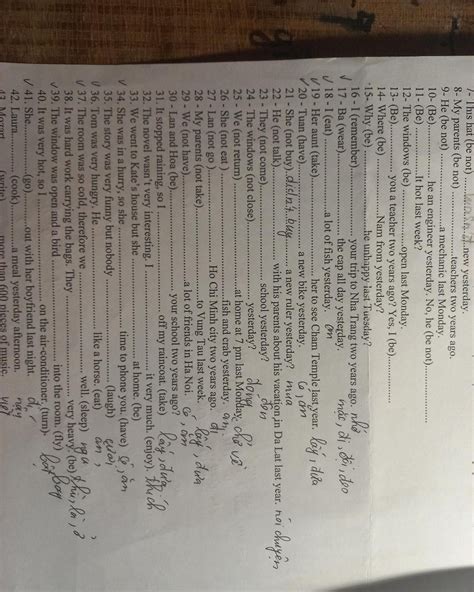 7- His (be not)............new yesterday.
8- My parents (be not) ............teachers two years ago.
9- He (be not)............a mechanic last Monday.
10- (Be)............he an engineer yesterday. No, he (be not)............
11- (Be)............ It hot last week?
12- The windows (be) ............open last Monday.
13- (Be)............ you a teacher two years ago? Yes, i (be)............
14- Where (be) ............ Nam from yesterday?
15- Why (be)............he unhappy last Tuesday?
16- I (remember)............ your trip to Nha Trang two years ago. nhớ
17- Ba (wear)............ the cap all day yesterday. mặc, đi, đội, đeo
18- I (eat) ............a lot of fish yesterday. ăn
19- Her aunt (take)............ her to see Cham Temple last year. lấy, đưa
20- Tuan (have)............ a new bike yesterday. có, ăn
21- She (not buy) didn't buy a new ruler yesterday? mua
22- He (not talk)............ with his parents about his vacation in Da Lat last year. nói chuyện
23- They (not come)............ school yesterday? đến
24- The windows (not close)............ yesterday? đóng
25- We (not return)............ at home at 7 pm last Monday. trở về
26- We (eat )............ fish and crab yesterday. ăn
27- Lan (not go)............ Ho Chi Minh city two years ago. đi
28- My parents (not take)............to Vung Tau last week. lấy, đưa
29- We (not have)............a lot of friends in Ha Noi. có, ăn
30- Lan and Hoa (be)............ your school two years ago?
31. It stopped raining, so I ............ off my raincoat. (take) lấy, đưa
32. The novel wasn't very interesting. I ............it very much. (enjoy). thích
33. We went to Kate's house but she ............ at home. (be)
34. She was in a hurry, so she ............time to phone you. (have) có, ăn
35. The story was very funny but nobody ............ (laugh) cười
36. Tom was very hungry. He ............ like a horse. (eat) ăn
37. The room was so cold, therefore we ............ well. (sleep) ngủ
38. It was hard work carrying the bags. They ............very heavy. (be) thì, là, ở
39. The window was open and a bird ............ into the room. (fly) bay
40. It was very hot, so I ............ on the air-conditioner. (turn) bật
41. She............ (go)............out with her boyfriend last night. đi
42. Laura............ (cook)............ a meal yesterday afternoon. nấu
43. Mozart............ (write)............ more than 600 pieces of music. viết